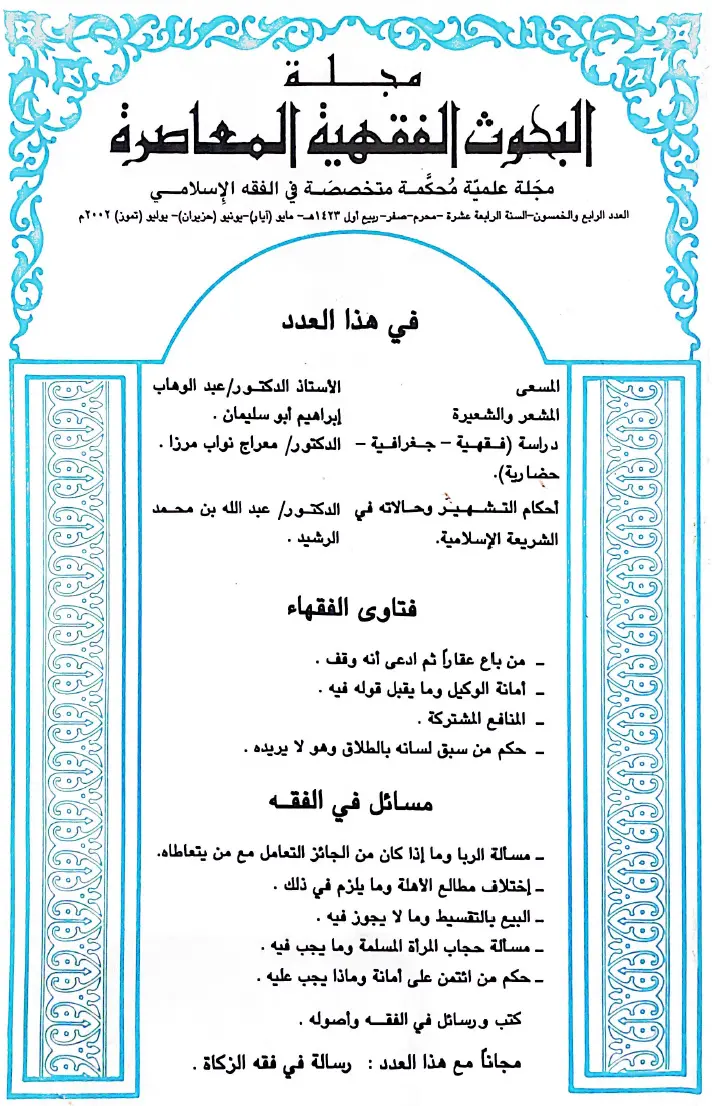 مجلة
البحوث الفقهية المعاصرة
مجَلة علميّة مُحكَّمة متخصصَة في الفقه الإسلامي
العدد الرابع والخمسون-السنة الرابعة عشرة -محرم-صفر-ربيع أول ١٤٢٣هـ- مايو (آيار)-يونيو (حزيران)- يوليو (تموز) ٢٠٠٢م
في هذا العدد
المسعى الأستاذ الدكتور/عبد الوهاب
المشعر والشعيرة إبراهيم أبو سليمان .
دراسة (فقهية - جغرافية - الدكتور/ معراج نواب مرزا .
حضارية).
أحكام التشهير وحالاته في الدكتور/ عبد الله بن محمد
الشريعة الإسلامية. الرشيد .
فتاوى الفقهاء
- من باع عقاراً ثم ادعى أنه وقف .
- أمانة الوكيل وما يقبل قوله فيه .
- المنافع المشتركة .
- حكم من سبق لسانه بالطلاق وهو لا يريده .
مسائل في الفقه
- مسألة الربا وما إذا كان من الجائز التعامل مع من يتعاطاه.
- إختلاف مطالع الأهلة وما يلزم في ذلك .
- البيع بالتقسيط وما لا يجوز فيه .
- مسألة حجاب المرأة المسلمة وما يجب فيه .
- حكم من ائتمن على أمانة وماذا يجب عليه .
كتب ورسائل في الفقه وأصوله .
مجاناً مع هذا العدد : رسالة في فقه الزكاة .